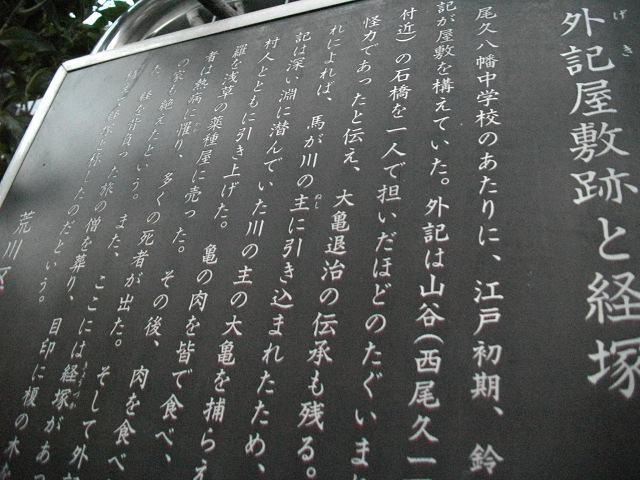 外記屋敷跡と経塚
げき
尾久八幡中学校のあたりに、江戸初期、鈴
記が屋敷を構えていた。外記は山谷(西尾久一
付近)の石橋を一人で担いだほどのたぐいま
怪力であったと伝え、大亀退治の伝承も残る。
れによれば、馬が川の主に引き込まれたため、
ぬし
記は深い淵に潜んでいた川の主の大亀を捕らえ
村人とともに引き上げた。亀の肉を皆で食べ、
羅を浅草の薬種屋に売った。その後、肉を食べ
者は熱病に罹り、多くの死者が出た。そして外
の家も絶えたという。また、ここには経塚があ
た。経を背負った旅の僧を葬り、目印に榎の木を
きょうづか
植えて経塚と称したのだという。
荒川区